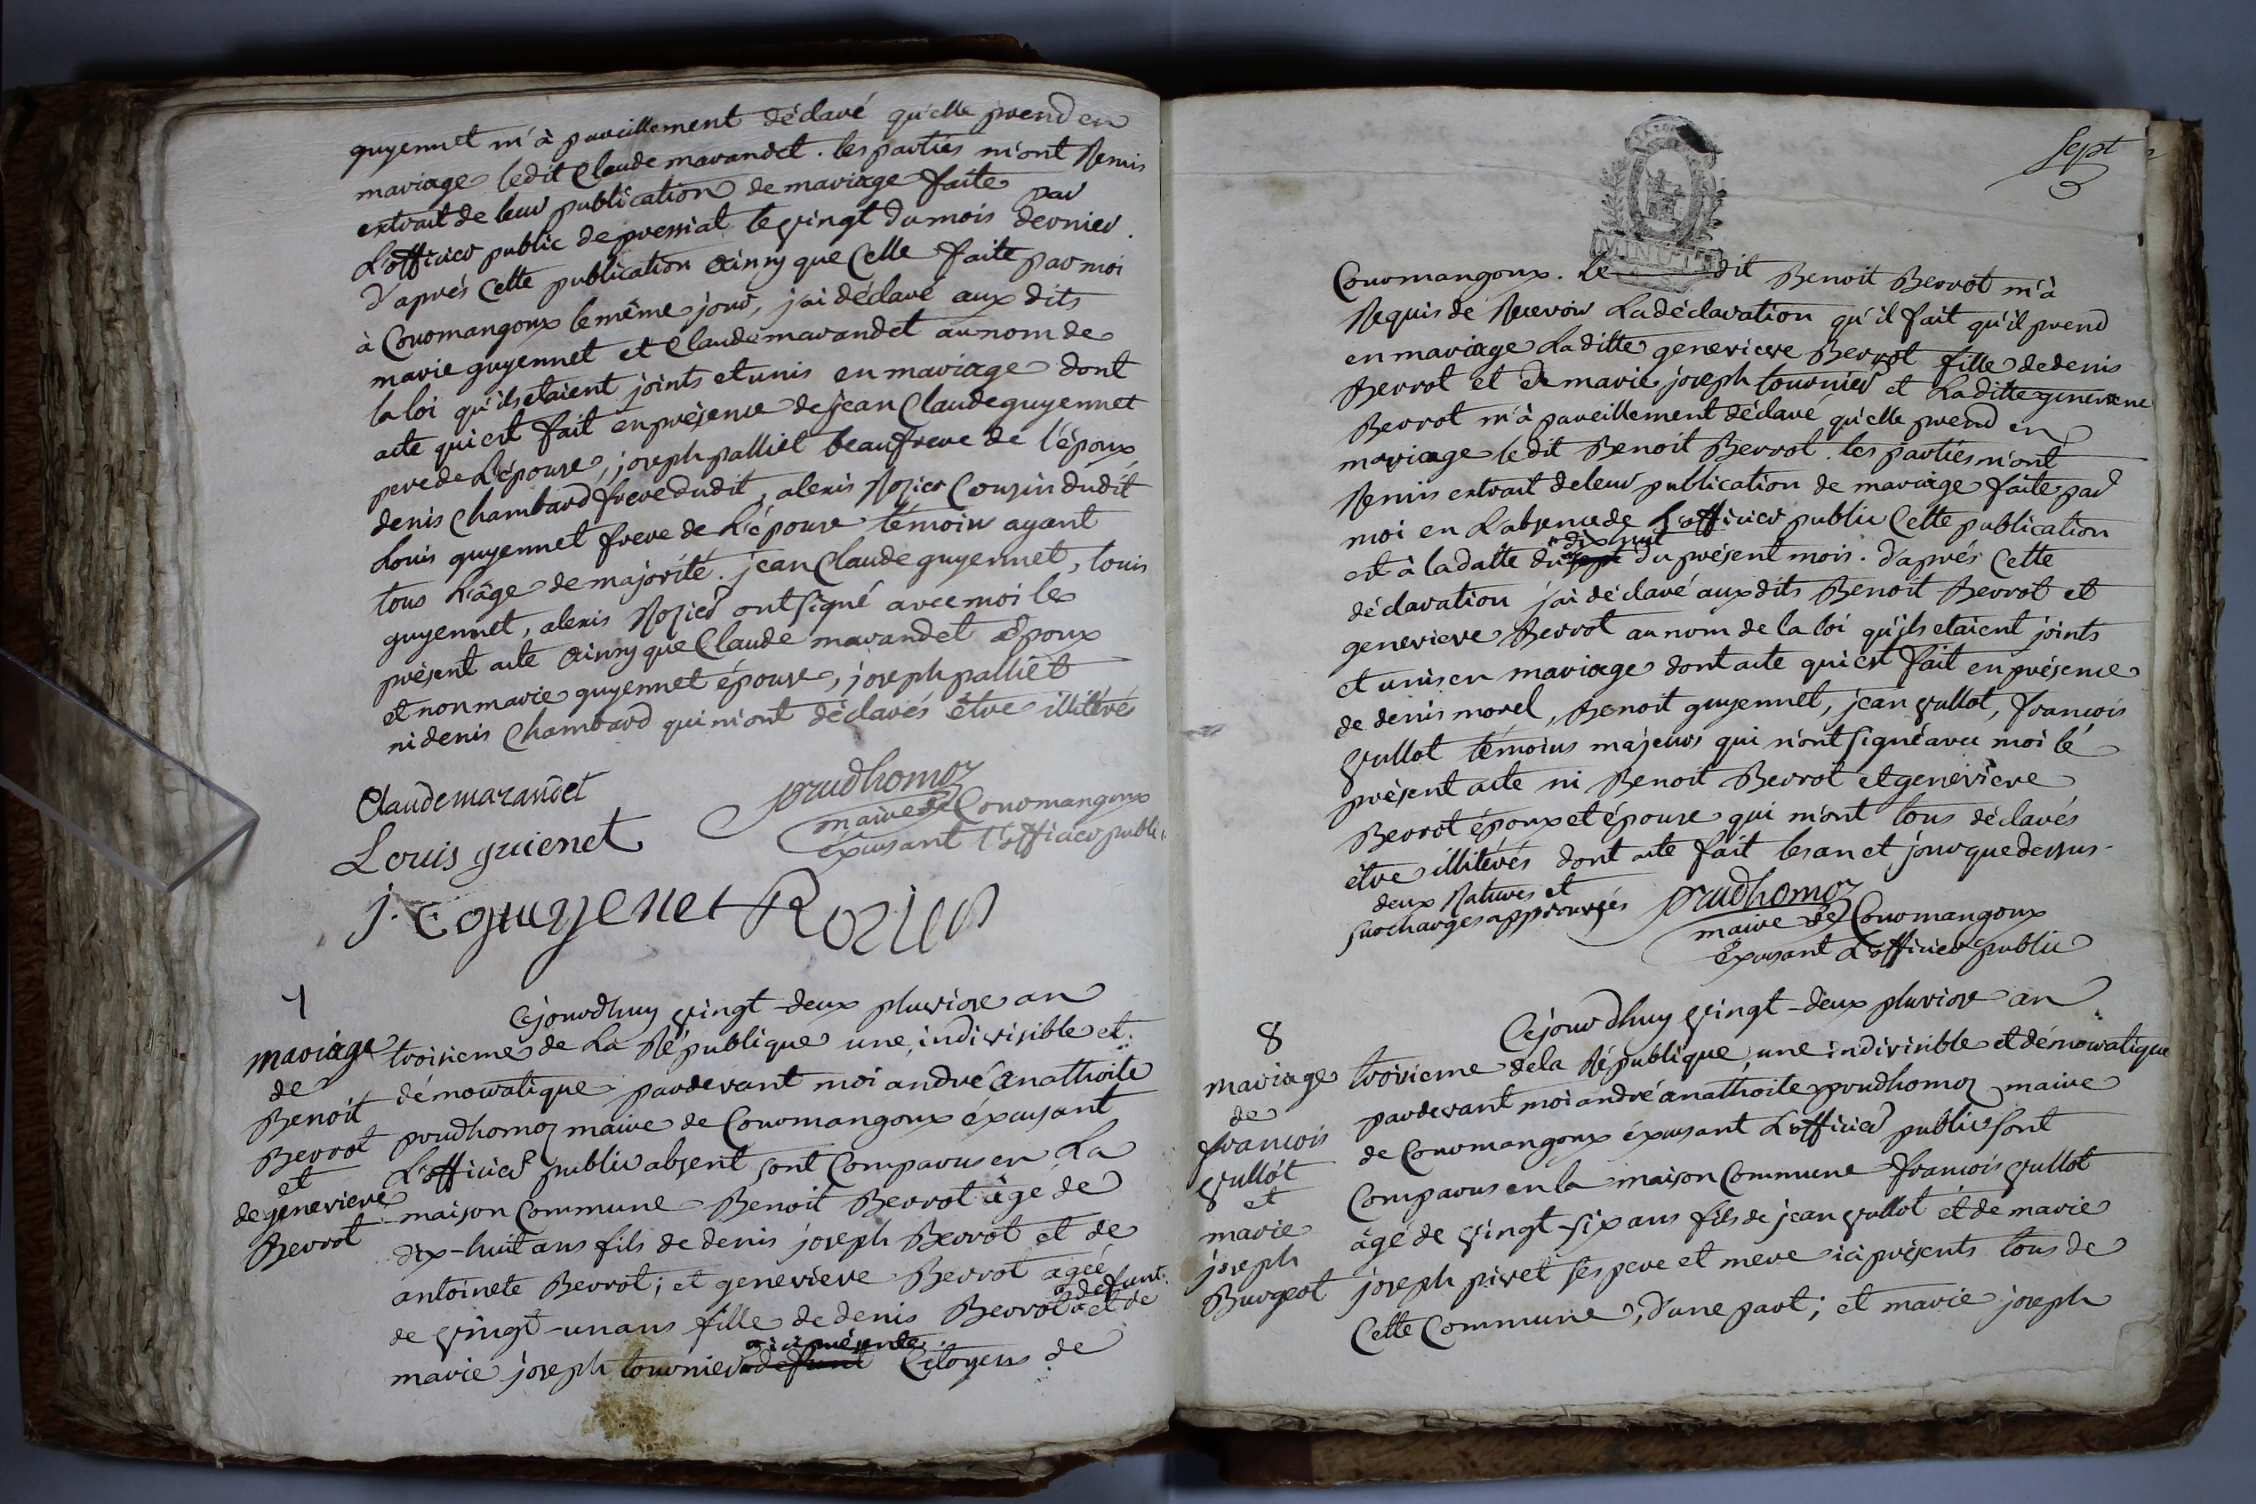 guyennet m'à pareillement déclaré qu'elle prend en
mariage ledit Claude marandet. les parties m'ont Remis
extrait de leur publication de mariage faite par
L'officier public de pressiat le vingt du mois dernier.
D'aprés Cette publication ainsy que Celle faite par moi
à Couromangoux le même jour, j'ai déclaré aux dits
marie guyennet et Claude marandet au nom de
la loi qu'ils etaient joints et unis en mariage dont
acte qui est fait en présence de jean Claude guyennet
pere de L'épouse, joseph palliet beaufrere de l'époux
denis Chambard frere dudit, alexis Rozier Cousin dudit
Louis guyennet frere de L'épouse témoins ayant
tous L'âge de majorité. jean Claude guyennet, louis
guyennet, alexis Rozier ont signé avec moi le
présent acte ainsy que Claude marandet époux
et non marie guyennet épouse, joseph palliet
ni denis Chambard qui m'ont déclarés être illitérés
Claude marandet
prudhomoz
maire de Couromangoux
éxersant l'officier public
Louis guienet
j. C guyenet Rozier
7
mariage
de
Benoit
Berrot
et
de genevieve
Berrot
Cejourdhuy vingt-deux pluviose an
troisieme de La République une, indivisible et
démocratique pardevant moi andré anathoite
prudhomoz maire de Couromangoux éxersant
L'officier public absent sont Comparus en La
maison Commune Benoit Berrot âgé de
dix-huit ans fils de denis joseph Berrot et de
antoinete Berrot; et genevieve Berrot agée
de vingt-un ans fille de denis Berrot defunt et de
marie joseph tournier ici présente defunt Citoyens de
sept
MINUTE
Couromangoux. Le dit Benoit Berrot m'à
Requis de Recevoir La déclaration qu'il fait qu'il prend
en mariage Laditte genevieve Berrot fille de denis
Berrot et de marie joseph tournier et Laditte genevieve
Berrot m'à pareillement déclaré qu'elle prend en
mariage ledit Benoit Berrot. les parties m'ont
Remis extrait de leur publication de mariage faite par
moi en L'absence de L'officier public Cette publication
est à la datte du dix huit du présent mois. d'aprés Cette
déclaration j'ai déclaré aux dits Benoit Berrot et
genevieve Berrot au nom de la loi qu'ils etaient joints
et unis en mariage dont acte qui est fait en présence
de denis morel, Benoit guyennet, jean vullot, francois
vullot témoins majeurs qui n'ont signé avec moi le
présent acte ni Benoit Berrot et genevieve
Berrot époux et épouse qui m'ont tous déclarés
être illitérés dont acte fait les an et jour que dessus.
deux Ratures et
surcharges approuvées
prudhomoz
maire de Couromangoux
éxersant L'officier public
8
mariage
de
francois
vullot
et
marie
joseph
Burgeot
Cejourdhuy vingt-deux pluviose an
troisieme de la République une indivisible et démocratique
pardevant moi andré anathoite prudhomoz maire
de Couromangoux éxersant L'officier public sont
Comparus en la maison Commune francois vullot
âgé de vingt-six ans fils de jean vullot et de marie
joseph pivet ses pere et mere ici présents tous de
Cette Commune, d'une part; et marie joseph